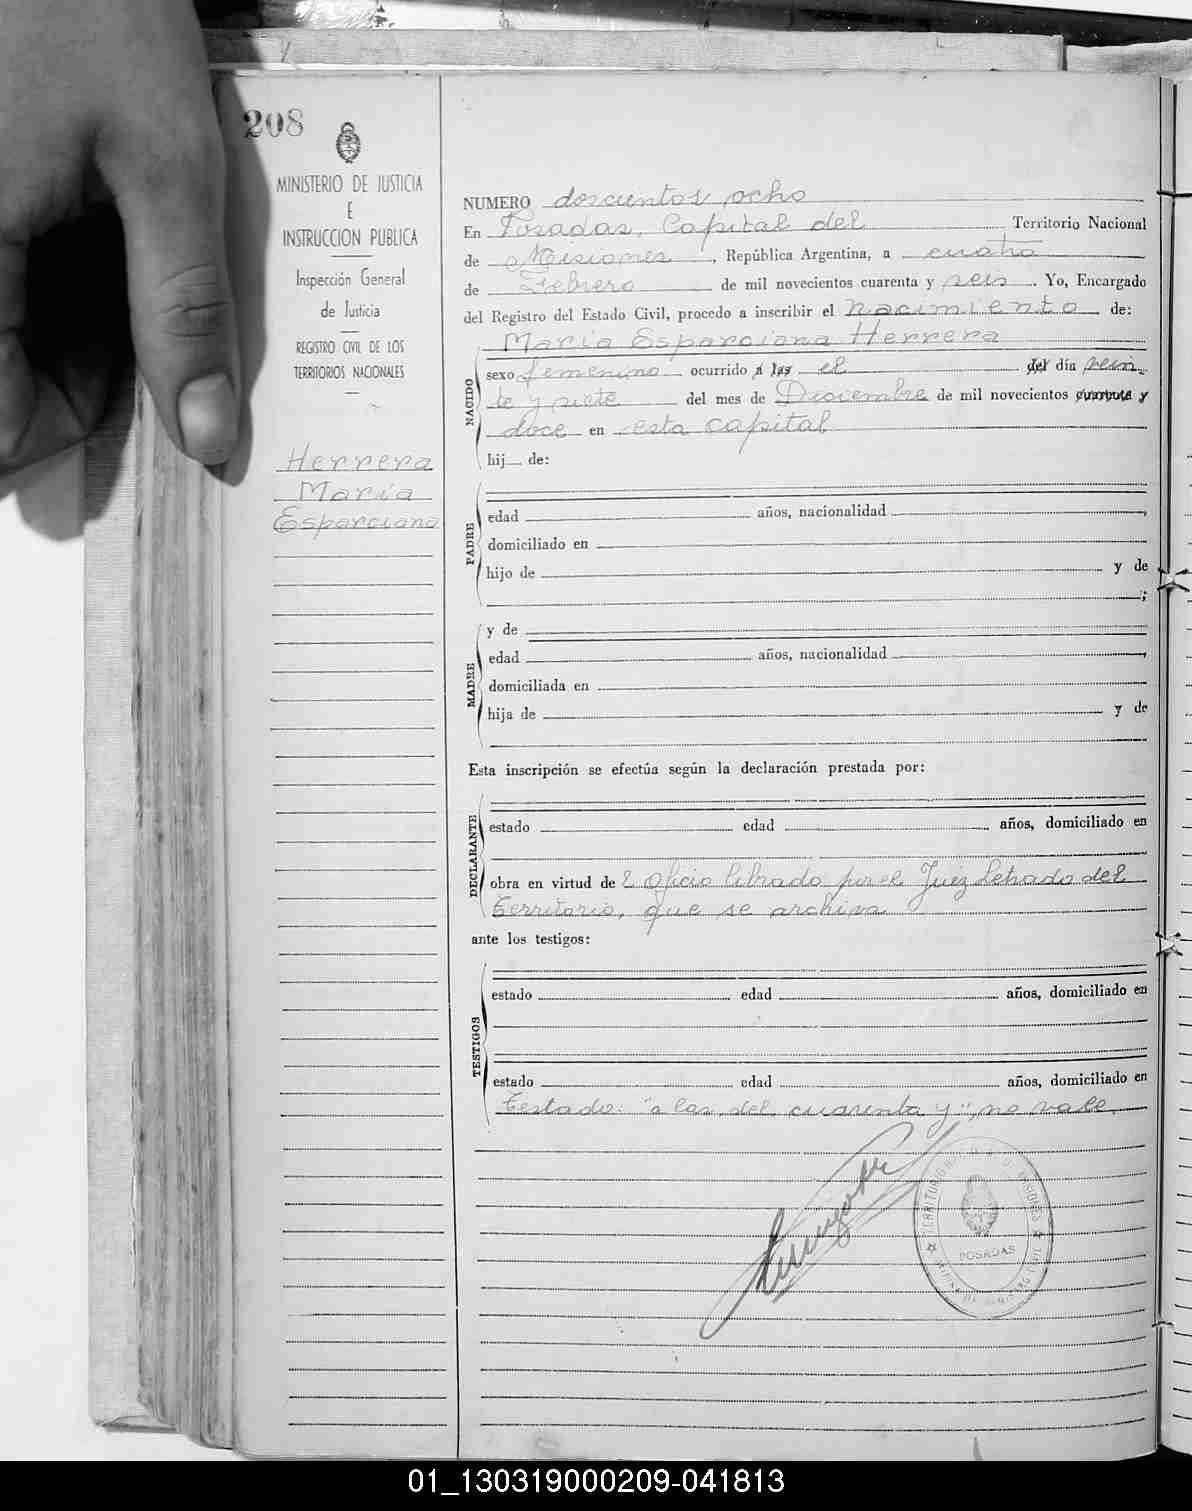 208
MINISTERIO DE JUSTICIA
E
INSTRUCCION PUBLICA
Inspección General
de Justicia
REGISTRO CIVIL DE LOS
TERRITORIOS NACIONALES
Herrera
María
Esparciana
NUMERO doscientos ocho
En Posadas, Capital del Territorio Nacional
de Misiones, República Argentina, a cuatro
de Febrero de mil novecientos cuarenta y seis. Yo, Encargado
del Registro del Estado Civil, procedo a inscribir el nacimiento de:
María Esparciana Herrera
NACIDO
sexo femenino ocurrido a las el del día vein
te y siete del mes de Diciembre de mil novecientos cuarenta y
doce en esta capital
hij de:
PADRE
edad años, nacionalidad ,
domiciliado en
hijo de y de
;
MADRE
y de
edad años, nacionalidad ,
domiciliada en
hija de y de
Esta inscripción se efectúa según la declaración prestada por:
DECLARANTE
estado edad años, domiciliado en
obra en virtud de Oficio librado por el Juez Letrado del
territorio, que se archiva
ante los testigos:
TESTIGOS
estado edad años, domiciliado en
estado edad años, domiciliado en
Testado: "a las, del, cuarenta y", no vale.
POSADAS
01_130319000209-041813